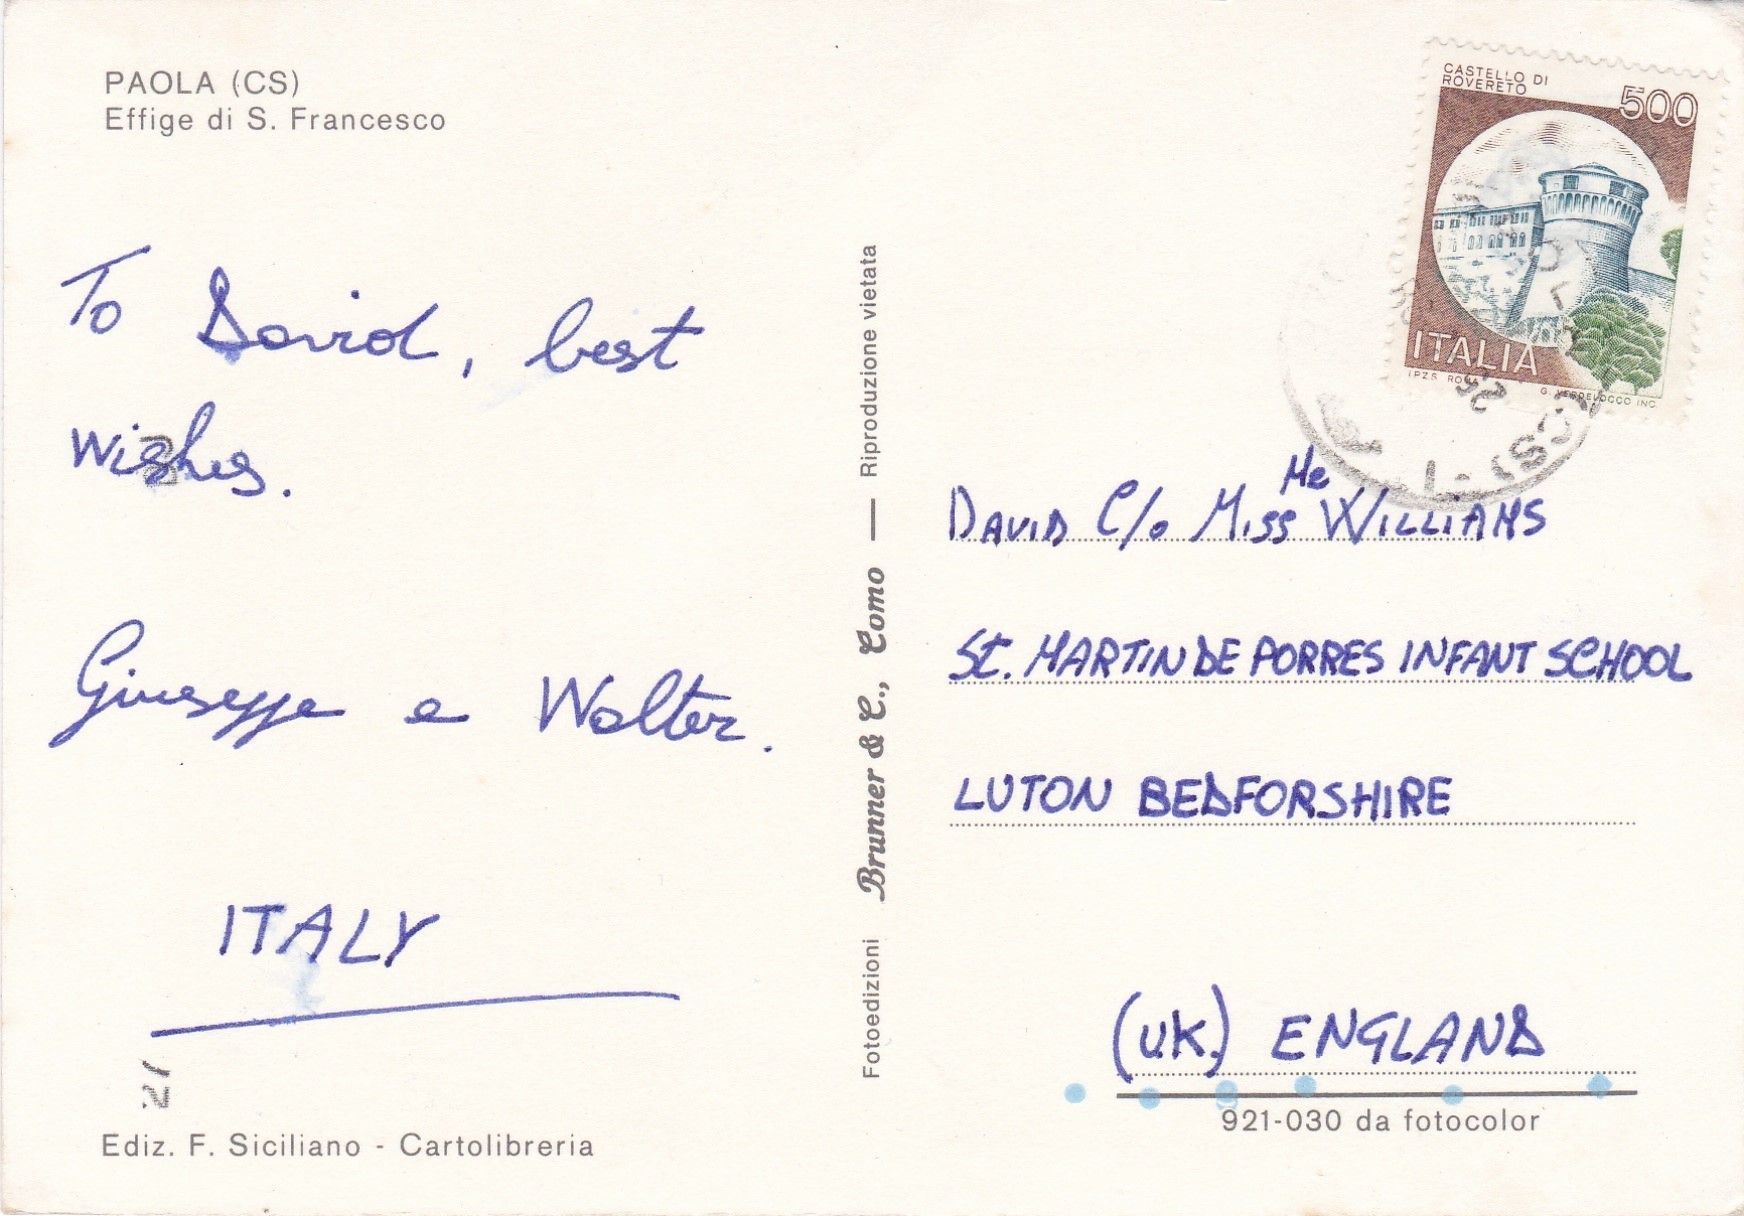 PAOLA (CS)
Effige di S. Francesco
To David, best
wishes.
Giuseppe e Walter.
ITALY
Ediz. F. Siciliano - Cartolibreria
Fotoedizioni Brunner & C., Como — Riproduzione vietata
CASTELLO DI
ROVERETO
500
ITALIA
I.P.Z.S. ROMA
G. VERDELOCCO INC.
Mc
DAVID C/o MISS WILLIAMS
St. MARTIN DE PORRES INFANT SCHOOL
LUTON BEDFORSHIRE
(UK.) ENGLAND
921-030 da fotocolor